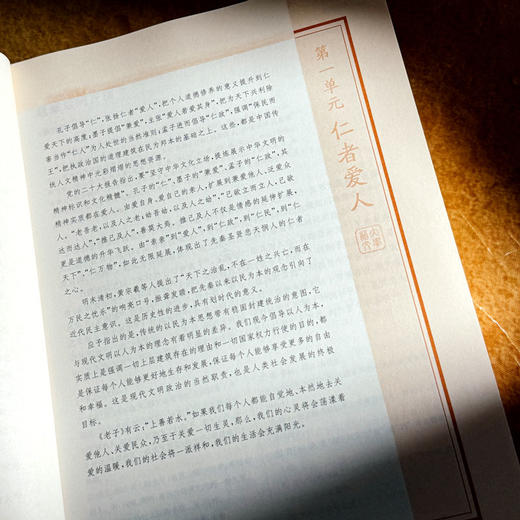 第一单元 仁者爱人
孔子倡导“仁”，张扬仁者“爱人”，把个人道德修养的意义提升到仁
爱天下的高度；墨子提倡“兼爱”，主张“爱人若爱其身”，把为天下兴利除
害当作“仁人”为人处世的当然准则；孟子进而倡导“仁政”，强调“保民而
王”，把执政治国的道理建筑在民为邦本的基础之上。这些，都是中国传
统人文精神中光彩熠熠的思想资源。
党的二十大报告指出，要“坚守中华文化立场，提炼展示中华文明的
精神标识和文化精髓”。孔子的“仁”，墨子的“兼爱”，孟子的“仁政”，其
精神实质都在爱人。由爱自身、爱自己的亲人，扩展到兼爱他人、泛爱众
人。“老吾老，以及人之老；幼吾幼，以及人之幼”，“己欲立而立人，己欲
达而达人”，“推己及人”，春莫大焉。推己及人不仅是情感的延伸扩展，
更是道德的升华飞跃。由“亲亲”到“爱人”，到“仁政”，到“仁民”，到“仁
天下”，“仁万物”，如此无限延展，体现出了先秦圣贤悲天悯人的仁者
之心。
明末清初，黄宗羲等人提出了“天下之治乱，不在一姓之兴亡，而在
万民之忧乐”的响亮口号，振聋发聩，把先秦以来以民为本的观念引向了
近代民主意识。这是历史性的进步，具有划时代的意义。
应予指出的是，传统的以民为本思想带有稳固封建统治的意图，它
与现代文明以人为本的理念有着明显的差异。我们现今倡导以人为本，
实质上是强调一切上层建筑存在的理由和一切国家权力行使的目的，都
是保证每个人能够更好地生存和发展，保证每个人能够享受更多的自由
和幸福。这是现代文明政治的当然职责，也是人类社会发展的终极
目标。
《老子》有云：“上善若水。”如果我们每个人都能自觉地、本然地去关
爱他人、关爱民众，乃至于关爱一切生灵，那么，我们的心灵将会荡漾着
爱的温暖，我们的社会将一派祥和，我们的生活会充满阳光。